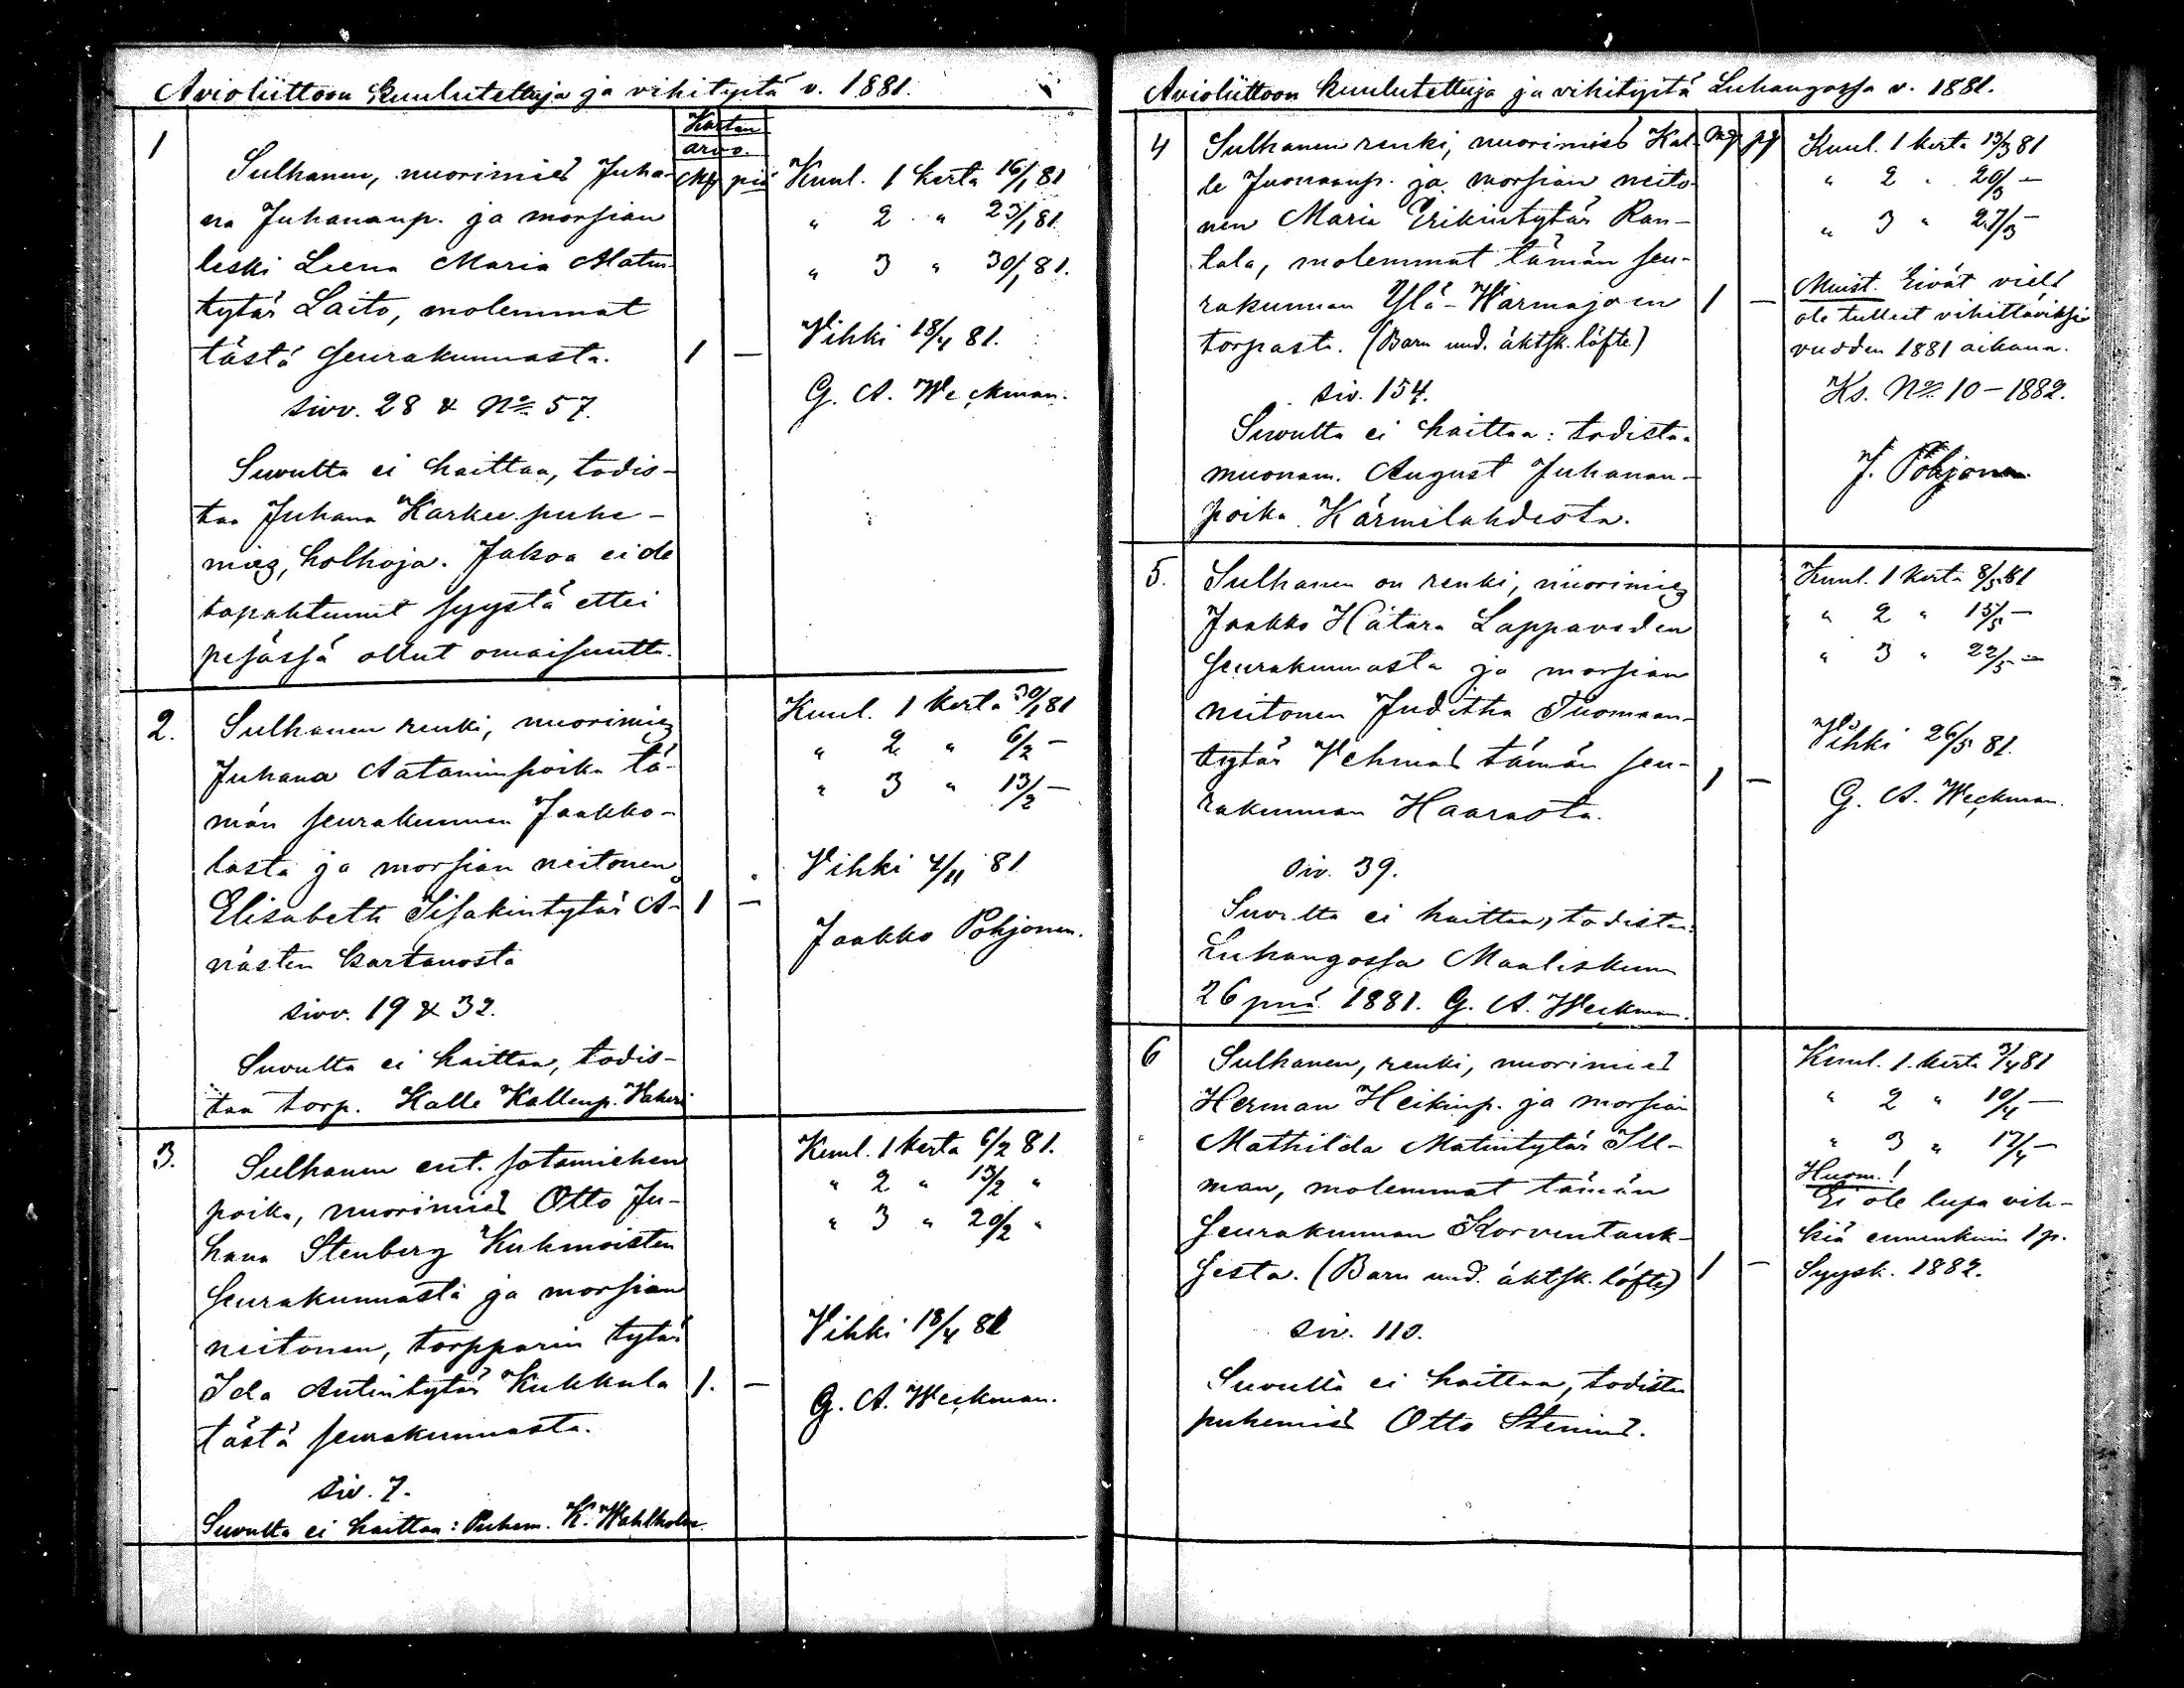 Avioliittoon kuulutettuja ja vihityitä v. 1881.
Kartan
arvo.
Mk piä
1
Sulhanen, nuorimies Juha-
na Juhananp. ja morsian
leski Leena Maria Matin-
tytär Laito, molemmat
tästä seurakunnasta. 1 —
sivv. 28 & No 57.
Suvulta ei haittaa, todis-
taa Juhana Karkee puhe-
mies, holhoja. Jakoa ei ole
tapahtunut syystä ettei
pesässä ollut omaisuutta.
Kuul. 1 kerta 16/1 81
" 2 " 23/1 81
" 3 " 30/1 81.
Vihki 18/4 81.
G. A. Weckman.
2.
Sulhanen renki, nuorimies
Juhana Aataminpoika tä-
män seurakunnan Jaakko-
lasta ja morsian neitonen
Elisabeth Iisakintytär A- 1 —
nästen kartanosta
sivv. 19 & 32.
Suvulta ei haittaa, todis-
taa torp. Kalle Kallenp. Hakeri
Kuul. 1 kerta 30/1 81
" 2 " 6/2 —
" 3 " 13/2 —
Vihki 4/11 81
Jaakko Pohjonen.
3.
Sulhanen ent. sotamiehen
poika, nuorimies Otto Ju-
hana Stenberg Kuhmoisten
seurakunnasta ja morsian
neitonen, torpparin tytär
Ida Antintytär Kukkula 1. —
tästä seurakunnasta.
siv. 7.
Suvulta ei haittaa: Puhem. K. Wahlholm.
Kuul. 1 kerta 6/2 81.
" 2 " 13/2 "
" 3 " 20/2 "
Vihki 18/4 81
G. A. Weckman.
Avioliittoon kuulutettuja ja vihityitä Luhangossa v. 1881.
4
Mk pi
Sulhanen renki, nuorimies Kal-
le Juonaanp. ja morsian neito-
nen Maria Erikintytär Ran-
tala, molemmat tämän seu-
rakunnan Ylä-Wärmajoen 1 —
torpasta. (Barn und. äktsk. löfte)
siv. 154.
Suvulta ei haittaa: todistaa
muonam. August Juhanan-
poika Kärmilahdesta.
Kuul. 1 kerta 13/3 81
" 2 " 20/3 —
" 3 " 27/3 —
Muist. Eivät vielä
ole tulleet vihittäviksi
vuoden 1881 aikana.
Ks. No 10 - 1882.
J. Pohjonen.
5.
Sulhanen on renki, nuorimies
Jaakko Hätärä Lappaveden
seurakunnasta ja morsian
neitonen Juditha Tuomaan-
tytär Vehmas tämän seu- 1 —
rakunnan Haarasta.
siv. 39.
Suvulta ei haittaa, todistaa:
Luhangossa Maaliskuun
26 pnä 1881. G. A. Weckman.
Kuul. 1 kerta 8/5 81
" 2 " 15/5 —
" 3 " 22/5 —
Vihki 26/5 81.
G. A. Weckman.
6
Sulhanen, renki, nuorimies
Herman Heikinp. ja morsian
Mathilda Matintytär Ill-
man, molemmat tämän
seurakunnan Korventauk-
sesta. (Barn und. äktsk. löfte) 1 —
siv. 110.
Suvulta ei haittaa, todistaa
puhemies Otto Stenius.
Kuul. 1. kerta 3/4 81
" 2 " 10/4 —
" 3 " 17/4 —
Huom.!
Ei ole lupa vih-
kiä ennenkuin 1 p.
Syysk. 1882.